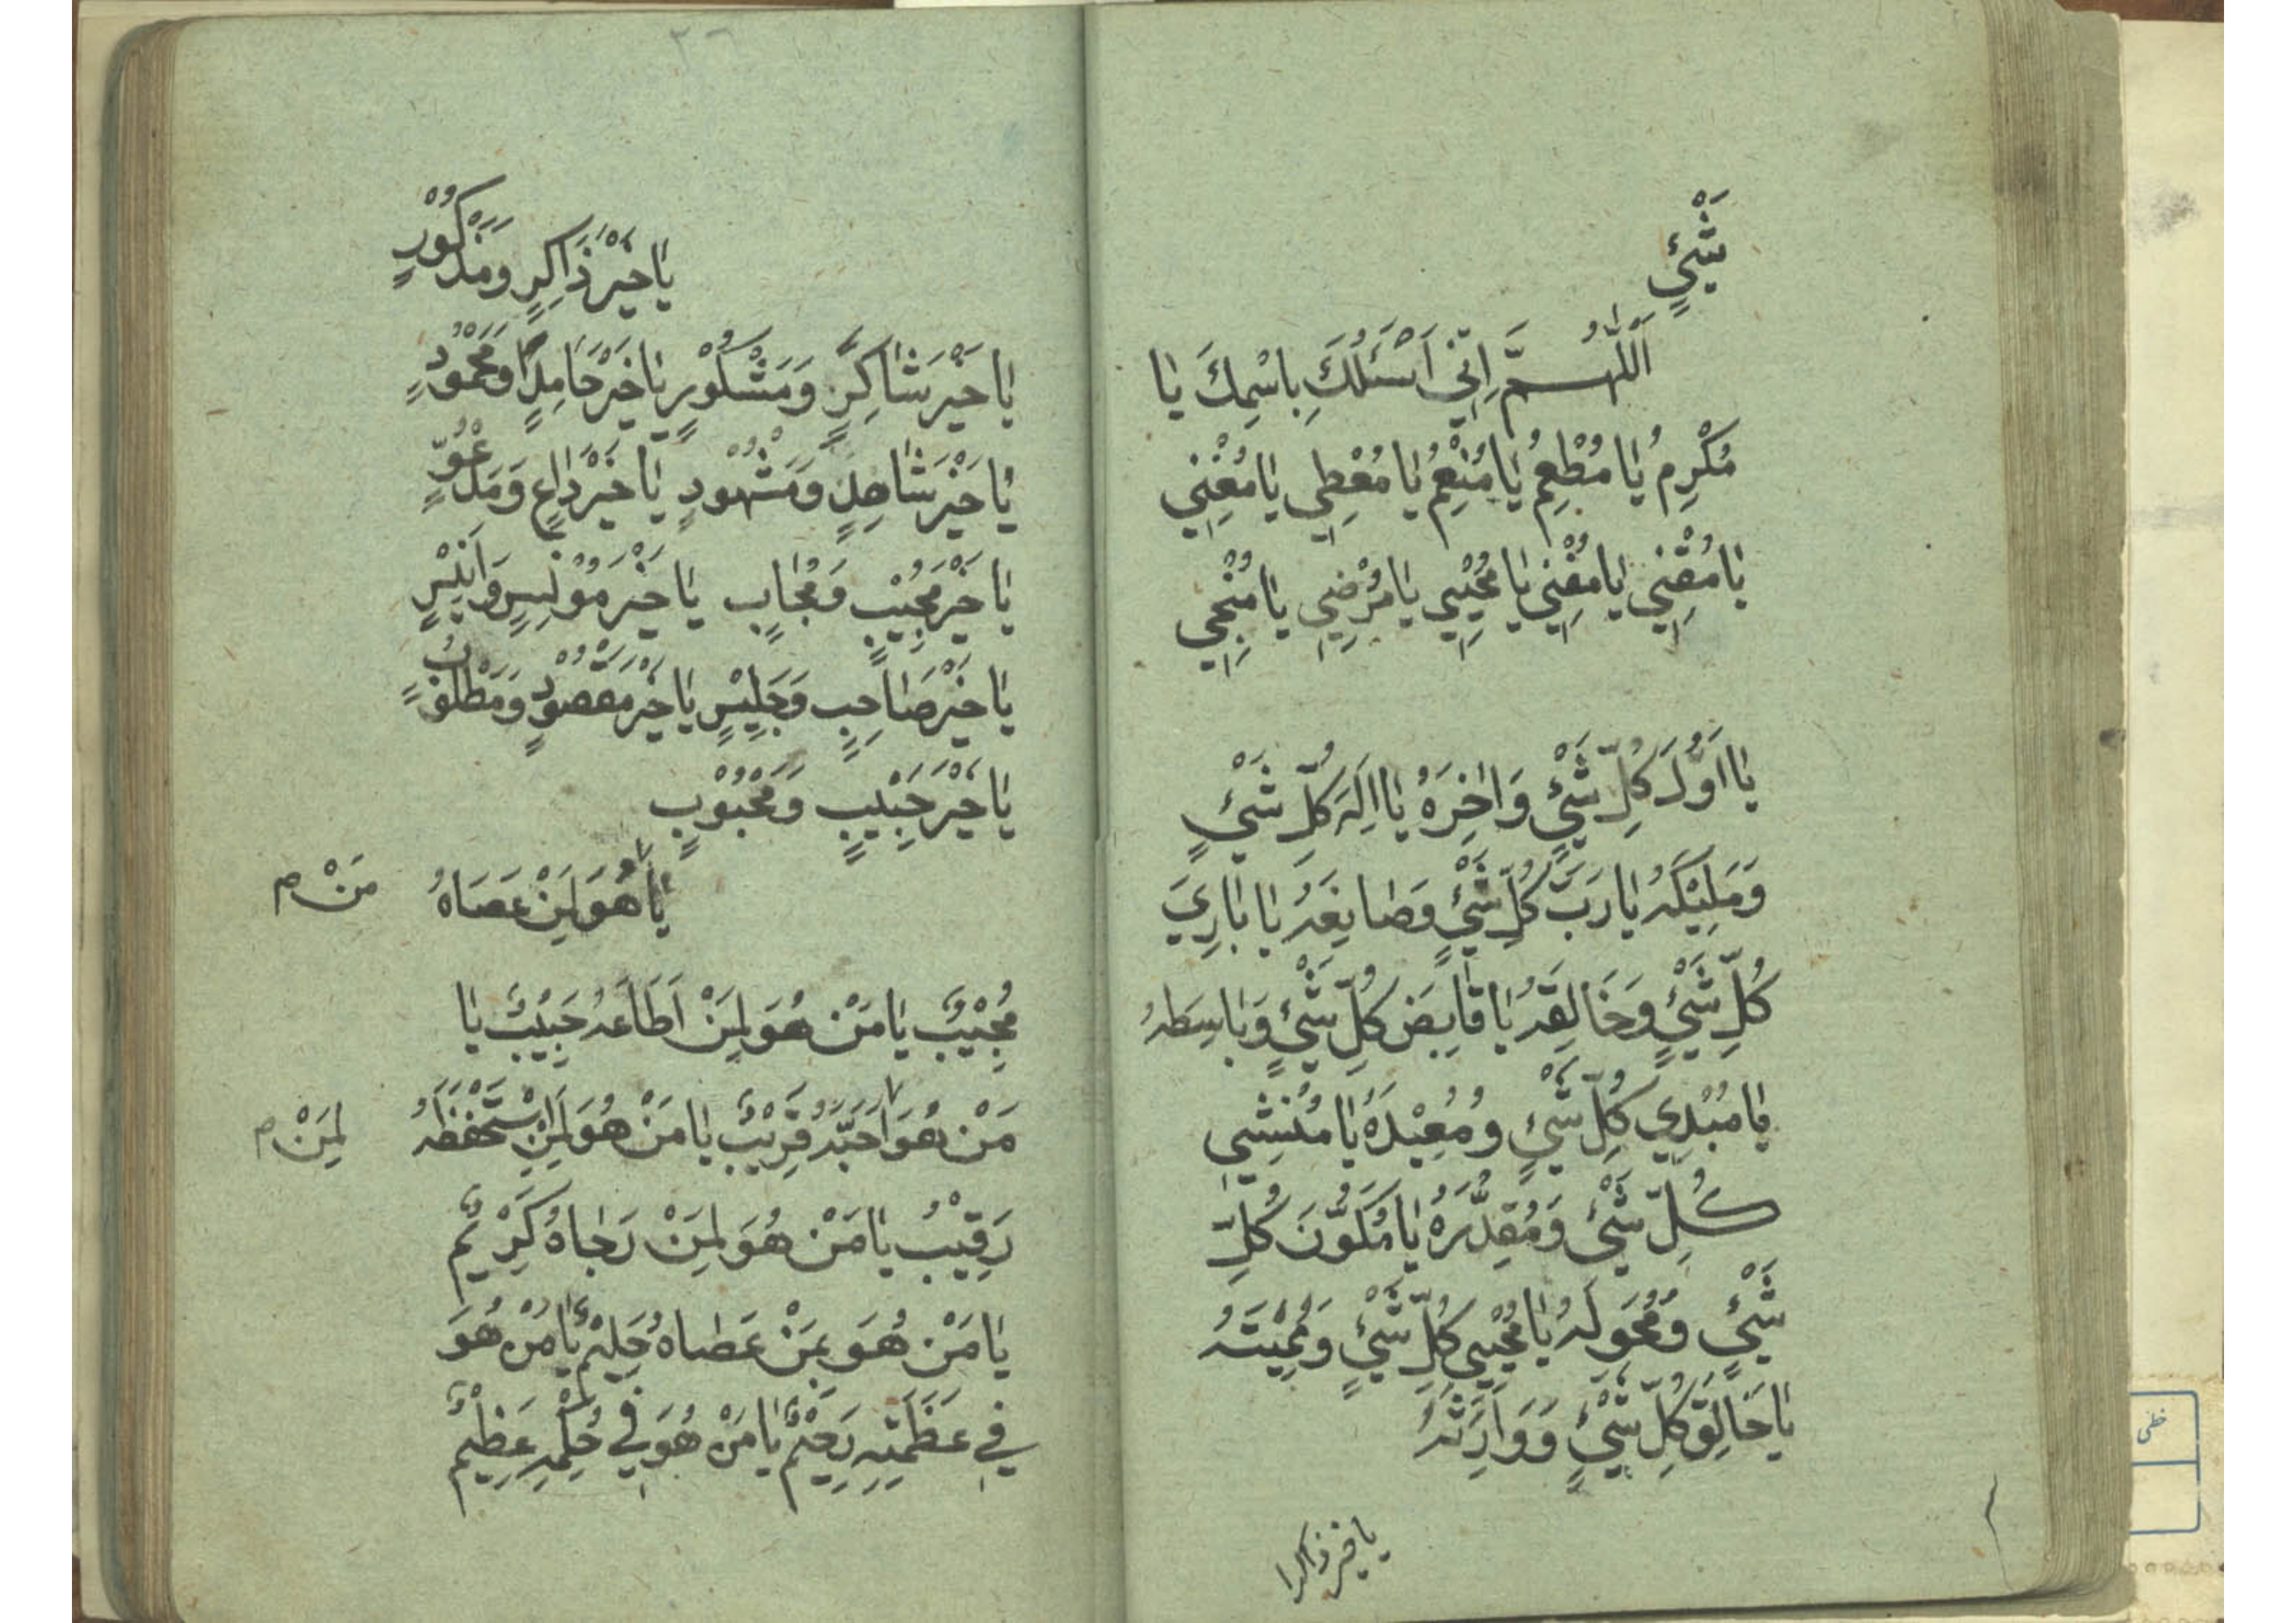 شَيْءٍ
اَللّٰهُمَّ اِنّي اَسْئَلُكَ بِاسْمِكَ يا
مُكْرِمُ يا مُطْعِمُ يا مُنْعِمُ يا مُعْطِي يا مُغْنِي
يا مُقْنِي يا مُفْنِي يا مُحْيِي يا مُرْضِي يا مُنْجِي
يا اَوَّلَ كُلِّ شَيْءٍ وَاٰخِرَهُ يا اِلٰهَ كُلِّ شَيْءٍ
وَمَلِيْكَهُ يا رَبَّ كُلِّ شَيْءٍ وَصانِعَهُ يا بارِيَ
كُلِّ شَيْءٍ وَخَالِقَهُ يا قابِضَ كُلِّ شَيْءٍ وَباسِطَهُ
يا مُبْدِي كُلِّ شَيْءٍ وَمُعِيْدَهُ يا مُنْشِي
كُلِّ شَيْءٍ وَمُقَدِّرَهُ يا مُكَوِّنَ كُلِّ
شَيْءٍ وَمُحَوِّلَهُ يا مُحْيِي كُلِّ شَيْءٍ وَمُمِيْتَهُ
يا خَالِقَ كُلِّ شَيْءٍ وَوَارِثَهُ
يا خير ذاكر
٣٦
يا خَيْرَ ذَاكِرٍ وَمَذْكُوْرٍ
يا خَيْرَ شاكِرٍ وَمَشْكُوْرٍ يا خَيْرَ حَامِدٍ وَمَحْمُوْدٍ
يا خَيْرَ شاهِدٍ وَمَشْهُوْدٍ يا خَيْرَ داعٍ وَمَدْعُوٍّ
يا خَيْرَ مُجِيْبٍ وَمُجابٍ يا خَيْرَ مُوْنِسٍ وَاَنِيْسٍ
يا خَيْرَ صاحِبٍ وَجَلِيْسٍ يا خَيْرَ مَقْصُوْدٍ وَمَطْلُوْبٍ
يا خَيْرَ حَبِيْبٍ وَمَحْبُوْبٍ
يا هُوَ لِمَنْ عَصَاهُ مَنْ م
مُجِيْبٌ يا مَنْ هُوَ لِمَنْ اَطَاعَهُ حَبِيْبٌ يا
مَنْ هُوَ اَحَبَّهُ قَرِيْبٌ يا مَنْ هُوَ لِمَنِ اسْتَحْفَظَهُ لِمَنْ م
رَقِيْبٌ يا مَنْ هُوَ لِمَنْ رَجاهُ كَرِيْمٌ
يا مَنْ هُوَ بِمَنْ عَصاهُ حَلِيْمٌ يا مَنْ هُوَ
فِي عَظَمَتِهِ رَحِيْمٌ يا مَنْ هُوَ فِي حُكْمِهِ عَظِيْمٌ
خطی